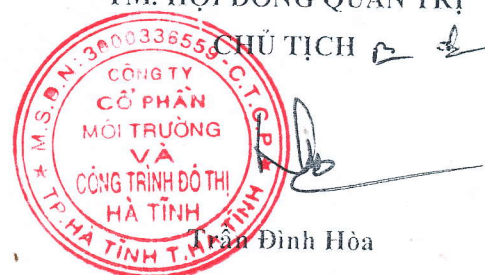 TM. HỘI ĐỒNG QUẢN TRỊ
CHỦ TỊCH
M.S.D.N: 3000336559-C.T.C.P
CÔNG TY
CỔ PHẦN
MÔI TRƯỜNG
VÀ
CÔNG TRÌNH ĐÔ THỊ
HÀ TĨNH
TP. HÀ TĨNH T. HÀ TĨNH
Trần Đình Hòa